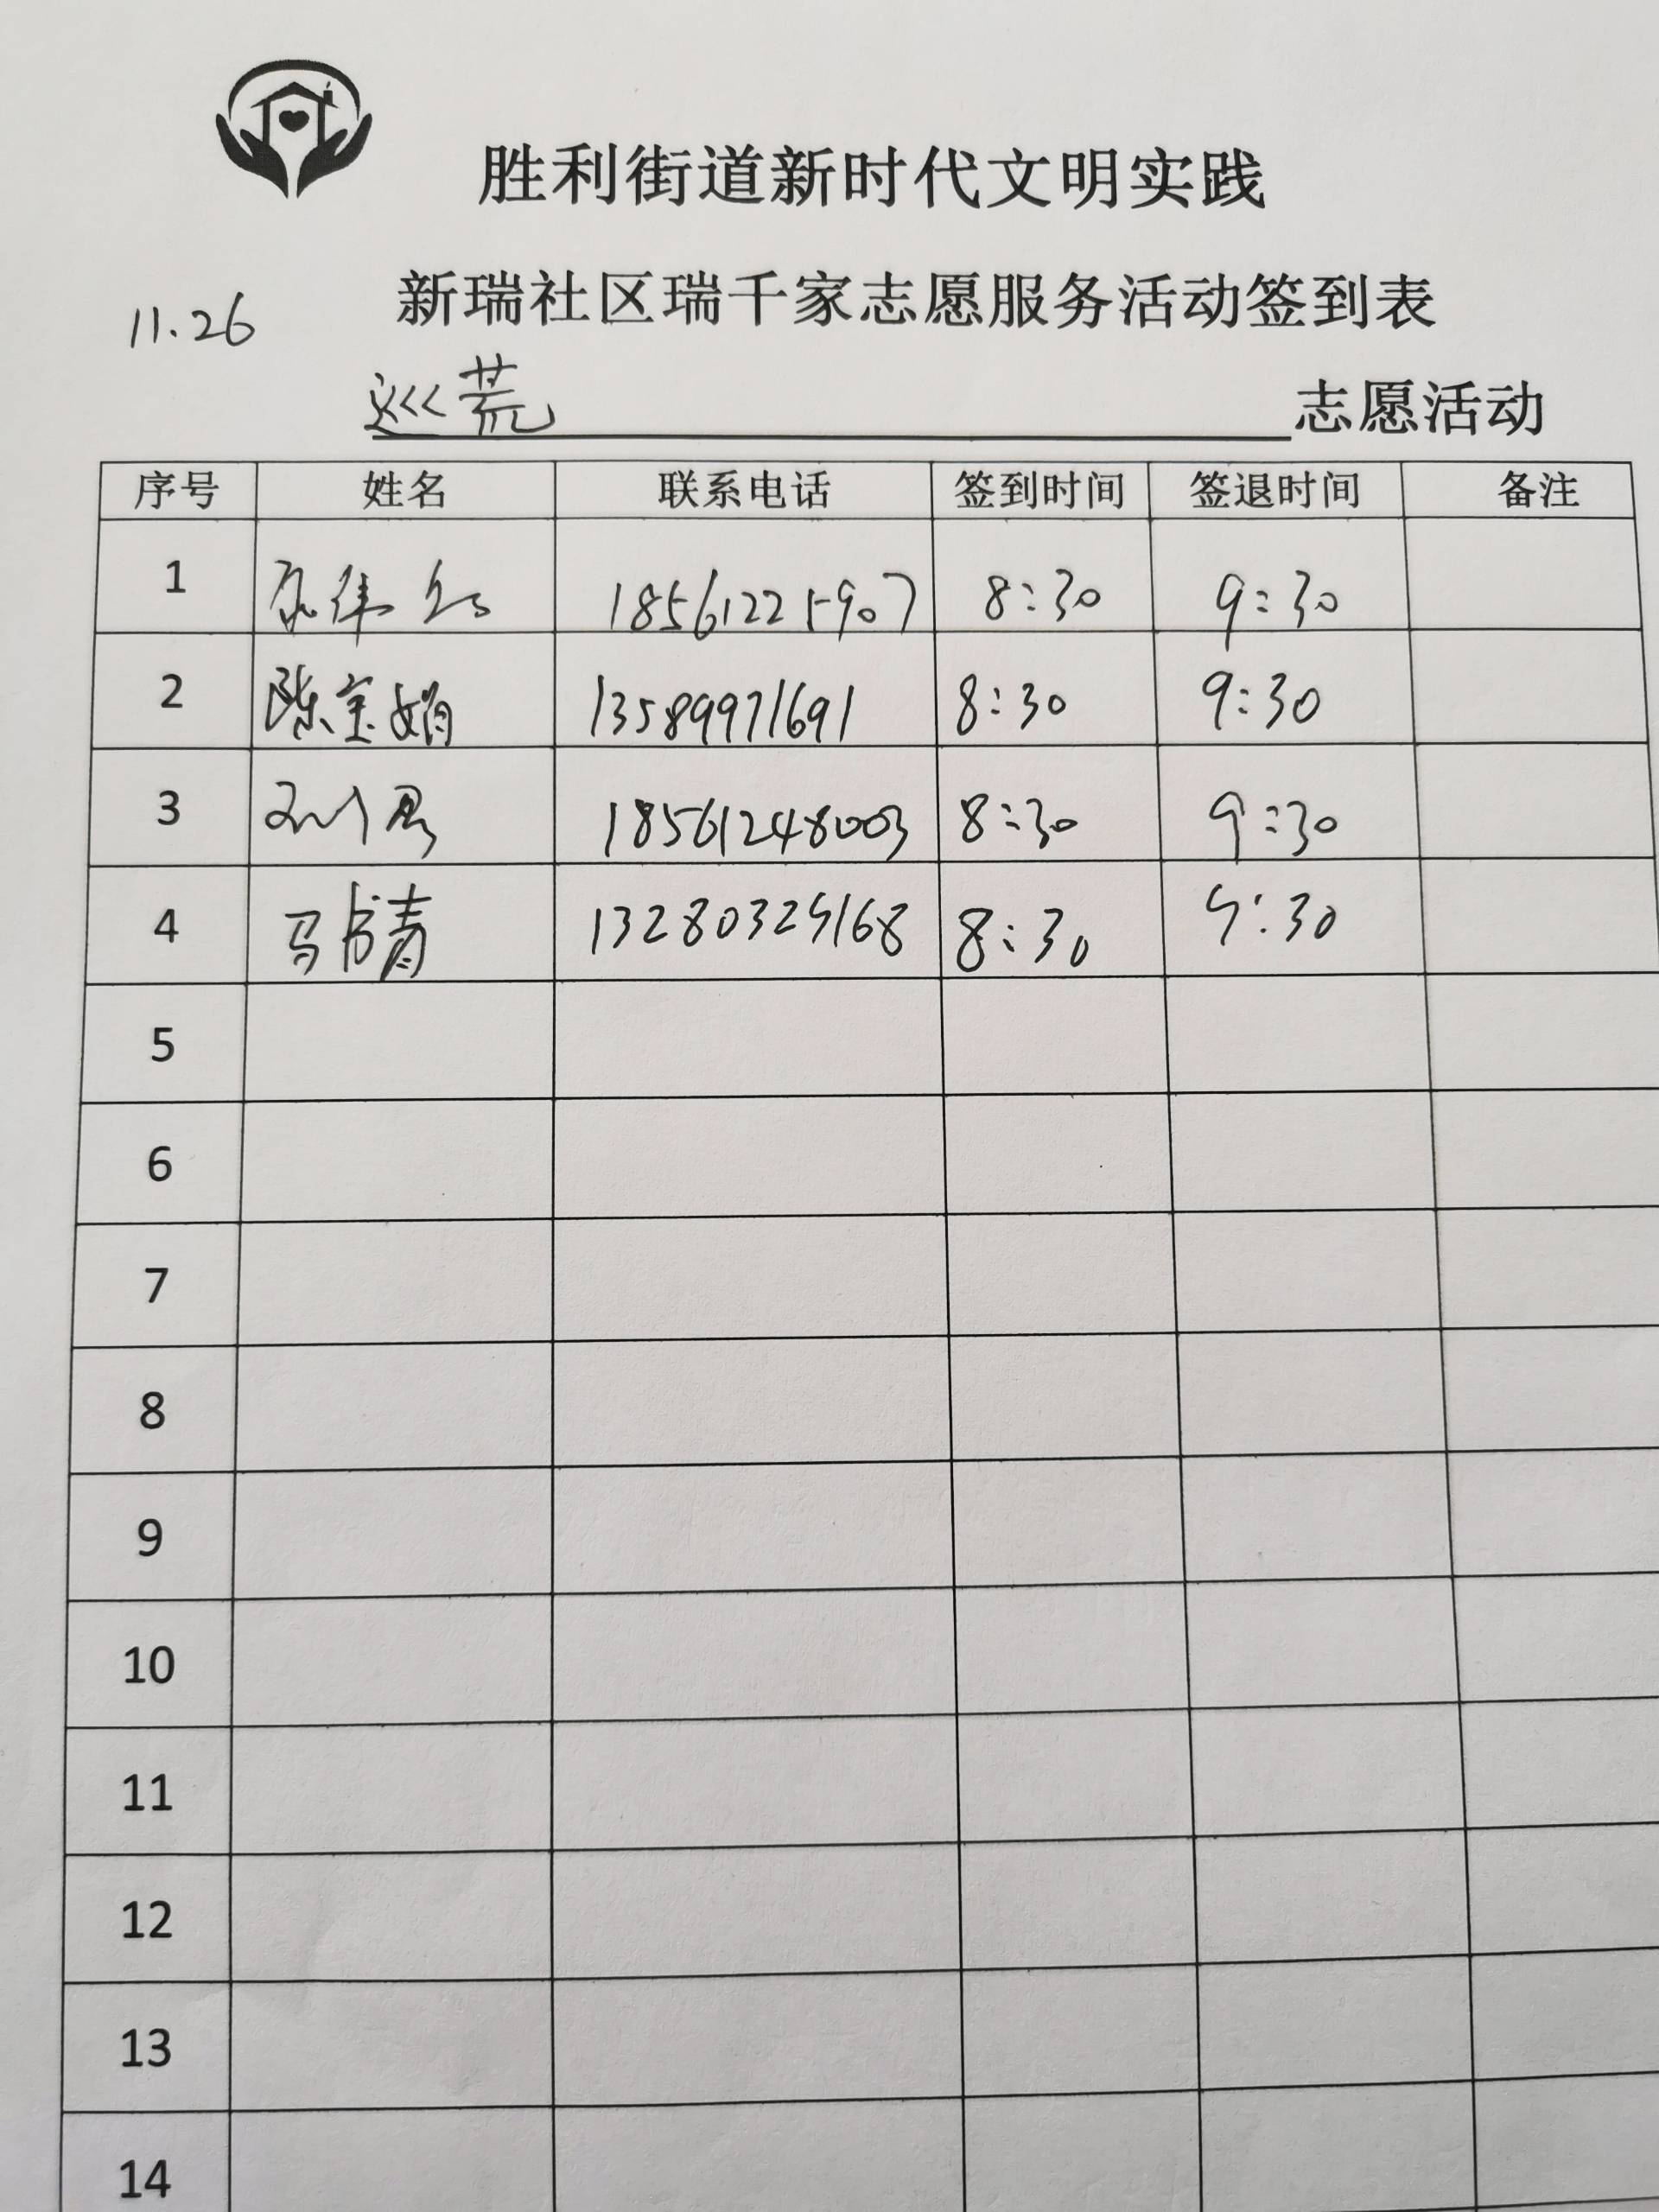 胜利街道新时代文明实践
新瑞社区瑞千家志愿服务活动签到表
11.26
巡荒 志愿活动
序号 姓名 联系电话 签到时间 签退时间 备注
1 18561221907 8:30 9:30
2 陈宝娟 13589971691 8:30 9:30
3 刘 18561248003 8:30 9:30
4 马书青 13280325168 8:30 9:30
5
6
7
8
9
10
11
12
13
14